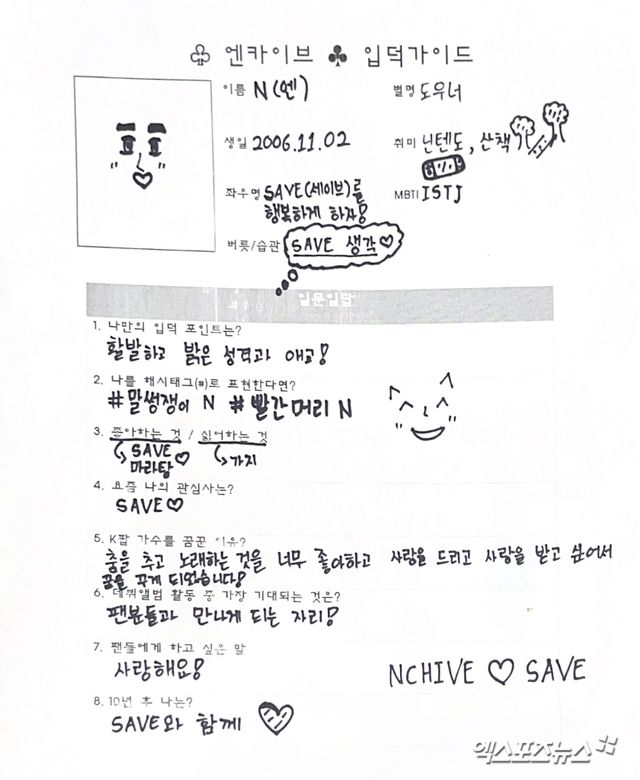 ♧ 엔카이브 ♣ 입덕가이드
이름 N(엔)
별명 도우너
생일 2006.11.02
취미 닌텐도, 산책
좌우명 SAVE(세이브)를
행복하게 하자!
MBTI ISTJ
버릇/습관 SAVE 생각♡
일문일답
1. 나만의 입덕 포인트는?
활발하고 밝은 성격과 애교!
2. 나를 해시태그(#)로 표현한다면?
#말썽쟁이 N #빨간머리 N
3. 좋아하는 것 / 싫어하는 것
SAVE♡
마라탕
가지
4. 요즘 나의 관심사는?
SAVE♡
5. K팝 가수를 꿈꾼 이유?
춤을 추고 노래하는 것을 너무 좋아하고 사랑을 드리고 사랑을 받고 싶어서
꿈을 꾸게 되었습니다!
6. 데뷔앨범 활동 중 가장 기대되는 것은?
팬분들과 만나게 되는 자리!
7. 팬들에게 하고 싶은 말
사랑해요!
NCHIVE ♡ SAVE
8. 10년 후 나는?
SAVE와 함께
엑스포츠뉴스